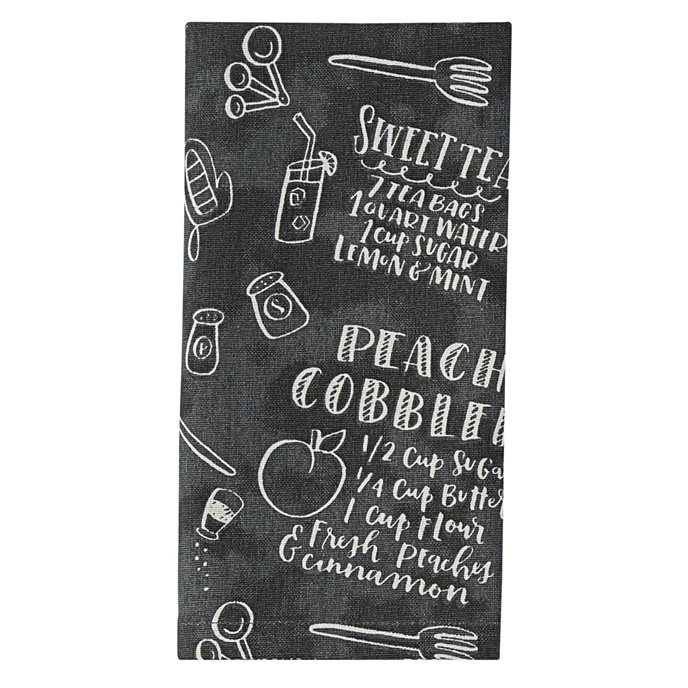 SWEET TEA
7 TEA BAGS
1 QUART WATER
1 CUP SUGAR
LEMON & MINT
S
P
PEACH
COBBLE
1/2 Cup Suga
1/4 Cup Butte
1 Cup Flour
& Fresh Peaches
& cinnamon